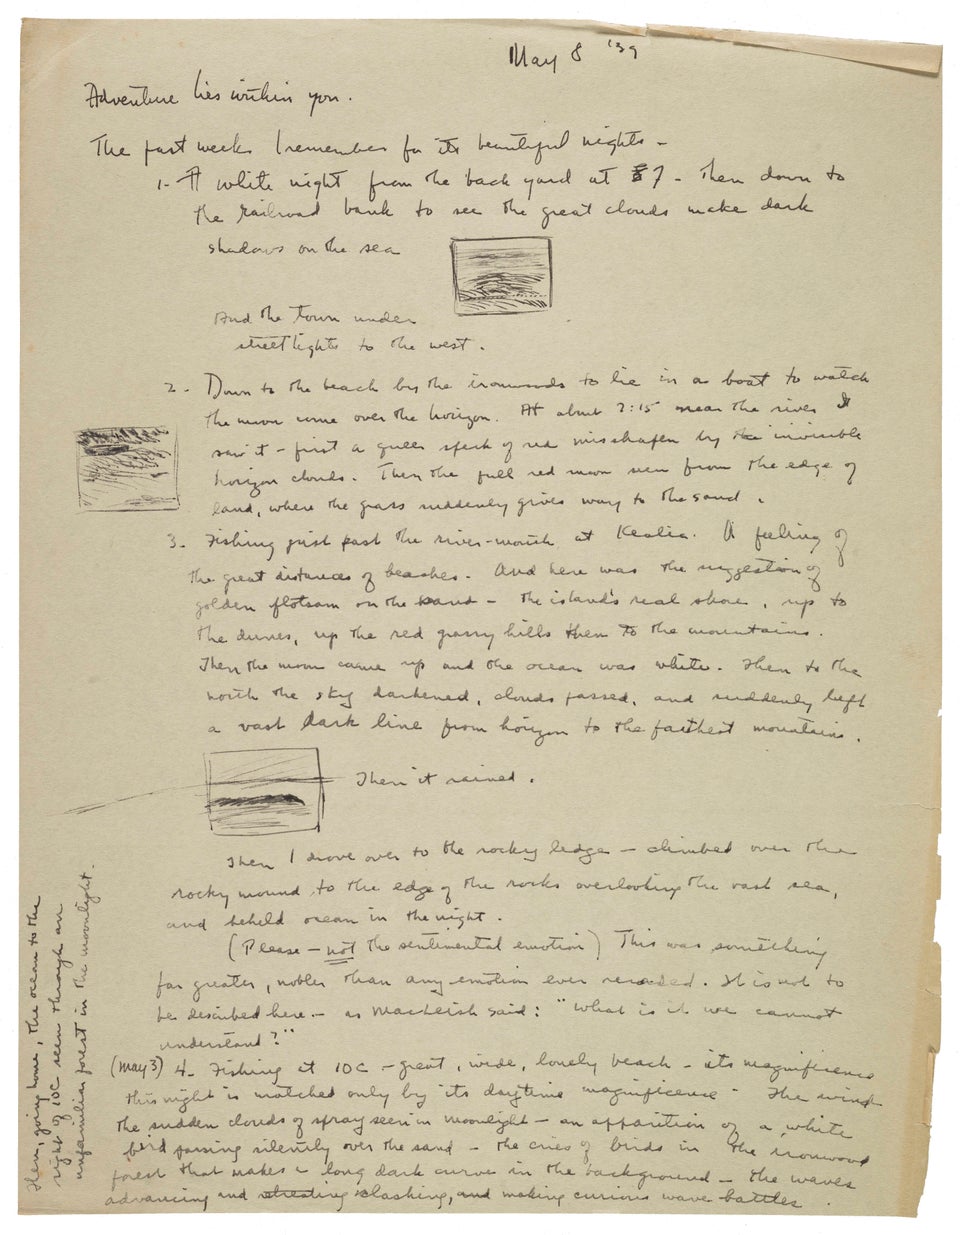 May 8 '39
Adventure lies within you.
The past weeks I remember for its beautiful nights –
1- A white night from the back yard at 7 - Then down to
the railroad bank to see the great clouds make dark
shadows on the sea
And the town under
streetlights to the west.
2- Down to the beach by the ironwoods to lie in a boat to watch
the moon come over the horizon. At about 7:15 near the river I
saw it – first a queer speck of red misshapen by the invisible
horizon clouds. Then the full red moon seen from the edge of
land, where the grass suddenly gives way to the sand.
3- Fishing just past the river-mouth at Kealia. A feeling of
the great distances of beaches. And here was the suggestion of
golden flotsam on the sand – the island's real shore, up to
the dunes, up the red grassy hills then to the mountains.
Then the moon came up and the ocean was white. Then to the
north the sky darkened, clouds passed, and suddenly left
a vast dark line from horizon to the farthest mountains.
Then it rained.
Then I drove over to the rocky ledge – climbed over the
rocky mound to the edge of the rocks overlooking the vast sea,
and beheld ocean in the night.
(Please – not the sentimental emotion) This was something
far greater, nobler than any emotion ever recorded. It is not to
be described here – as MacLeish said: "What is it we cannot
understand?"
(May 3) 4- Fishing at 10C – great, wide, lonely beach – its magnificence
this night is matched only by its daytime magnificence The wind
the sudden clouds of spray seen in moonlight – an apparition of a white
bird passing silently over the sand – the cries of birds in the ironwood
forest that makes a long dark curve in the background – the waves
advancing and retreating slashing, and making curious wave battles.
Then, going home, the ocean to the
right of 10C seen through an
unfamiliar forest in the moonlight.